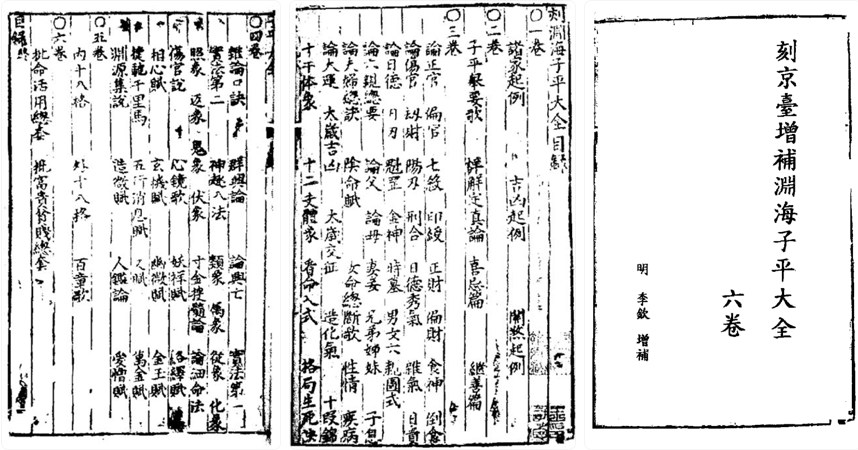 刻京臺增補淵海子平大全
六卷
明 李欽 增補
刻淵海子平大全目錄
〇一卷
諸家起例 吉凶起例 關煞起例
〇二卷
子平舉要歌 詳解定真論 喜忌篇 繼善篇
〇三卷
論正官 偏官 七煞 印綬 正財 偏財 食神 倒食
論傷官 劫財 陽刃 刑合 日德秀氣 雜氣 日貴
論日德 日刃 魁罡 金神 時墓 男女六親圖式
論六親總要 論父 論母 妻妾 兄弟姊妹 子息
論夫婦總訣 陰命賦 女命總斷歌 性情 疾病
論大運 太歲吉凶 太歲交征 造化氣 十段錦
十干体象 十二支體象 看命入式 格局生死
子平大全
〇四卷
雜論口訣 群興論 論興亡 寶法第一
寶法第二 神趣八法 類象 屬象 從象 化象
照象 返象 鬼象 伏象 寸金搜髓論 論命細法
傷官說 心鏡歌 妖祥賦 絡繹賦
相心賦 玄機賦 幽微賦 金玉賦
捷馳千里馬 五行消息賦 又賦 萬金賦
淵源集說 造微賦 人鑑論 愛憎賦
〇五卷
內十八格 外十八格 百章歌
〇六卷
批命活用總套 批富貴貧賤總套
目錄終